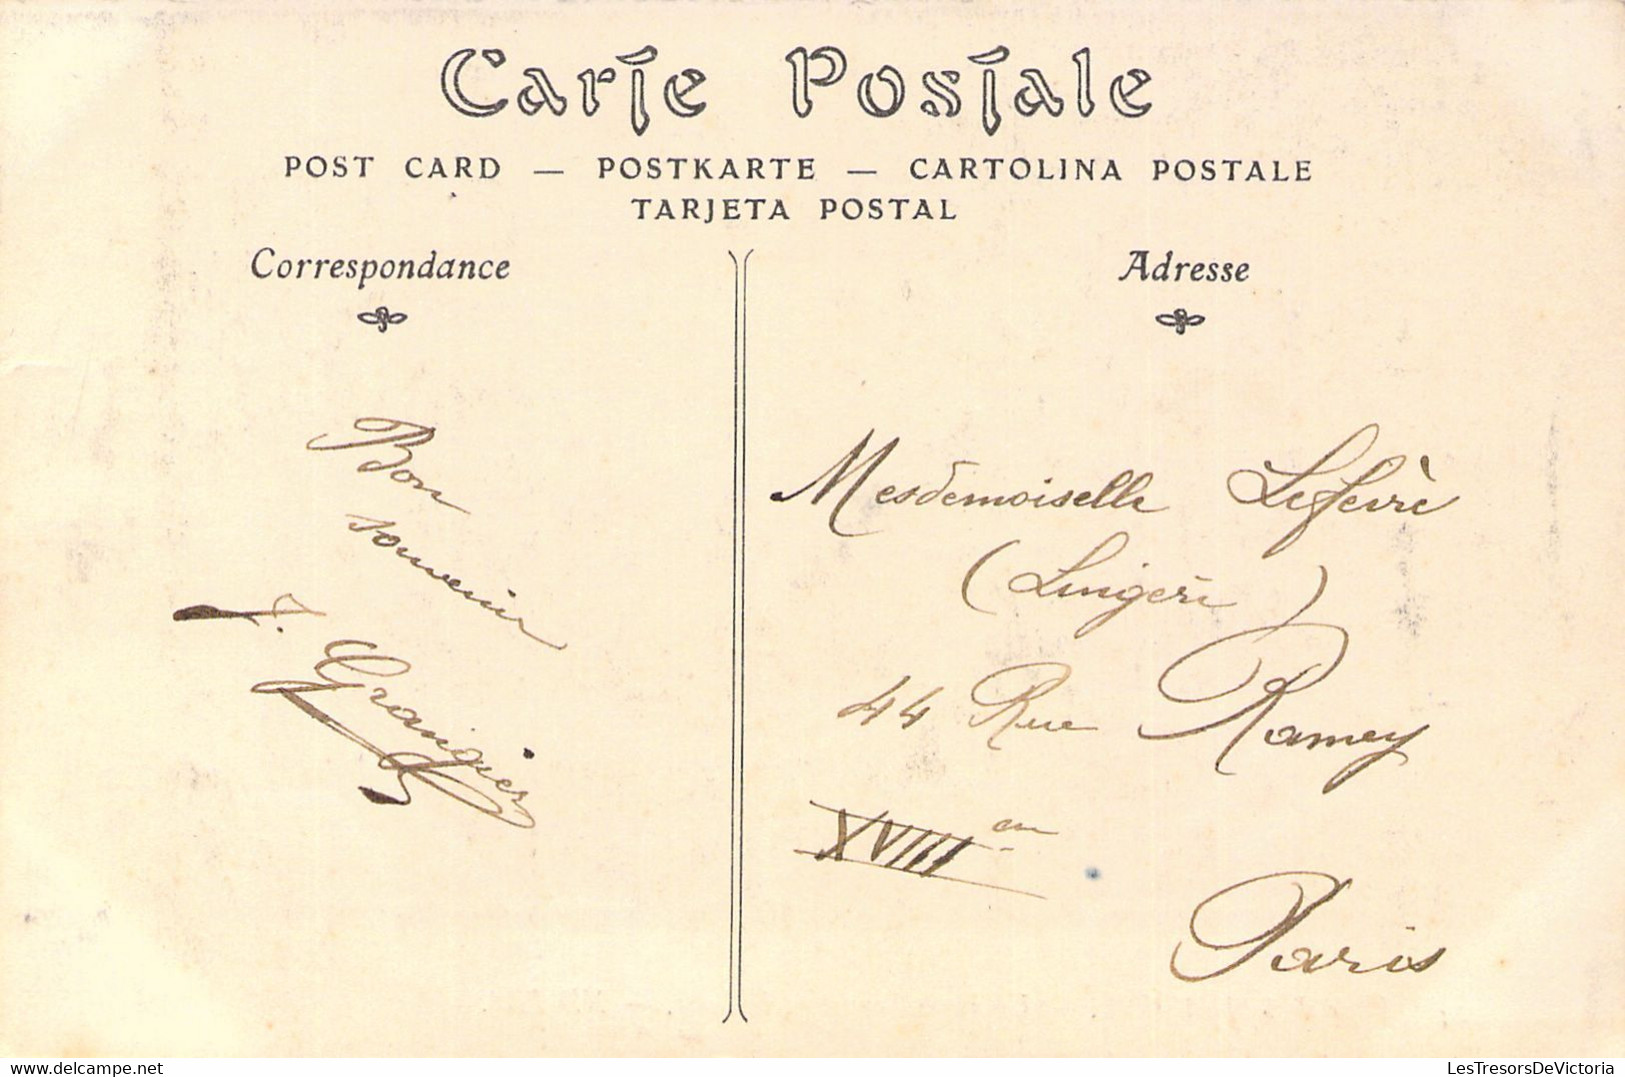 Carte Postale
POST CARD — POSTKARTE — CARTOLINA POSTALE
TARJETA POSTAL
Correspondance
Bon
souvenir
J. Grangier
Adresse
Mesdemoiselle Lefevre
(Lingerie)
44 Rue Ramey
XVIII em
Paris
LesTresorsDeVictoria